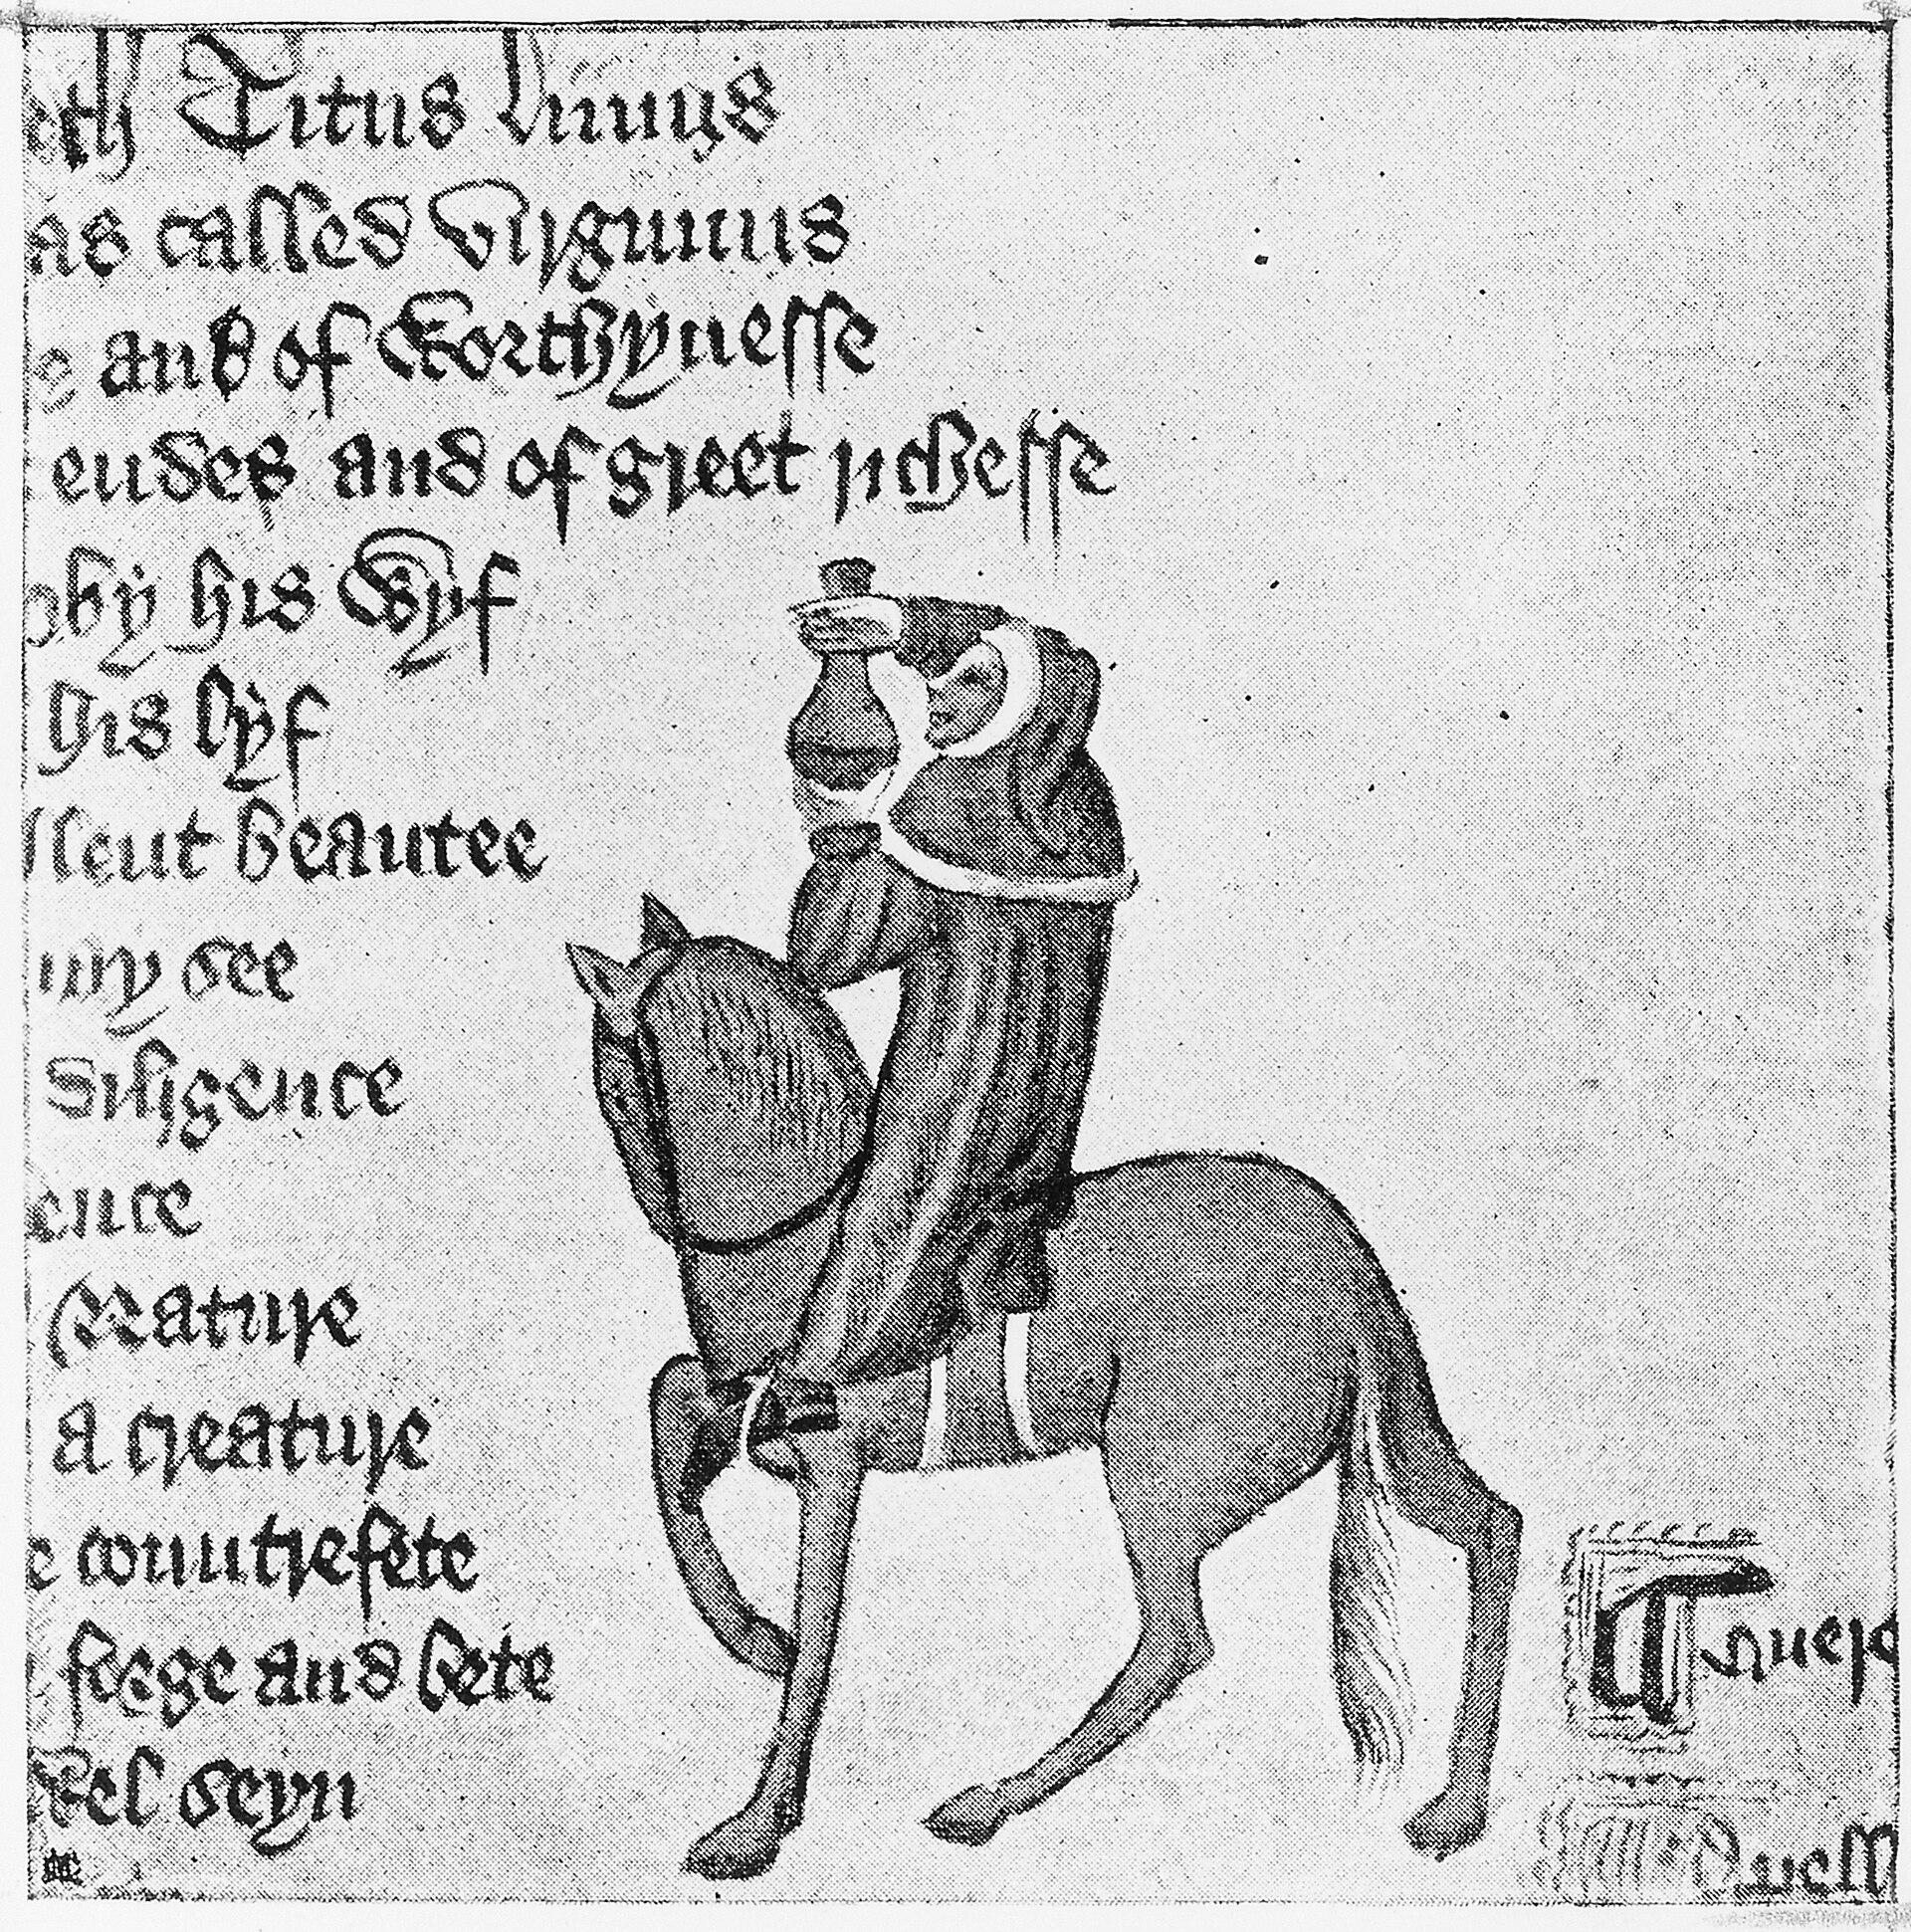 eth Titus liuius
as called virginius
e and of worthynesse
endes and of greet richesse
by his wyf
his lyf
llent beautee
may see
diligence
ence
creature
a creature
e countrefete
forge and bete
wel seyn